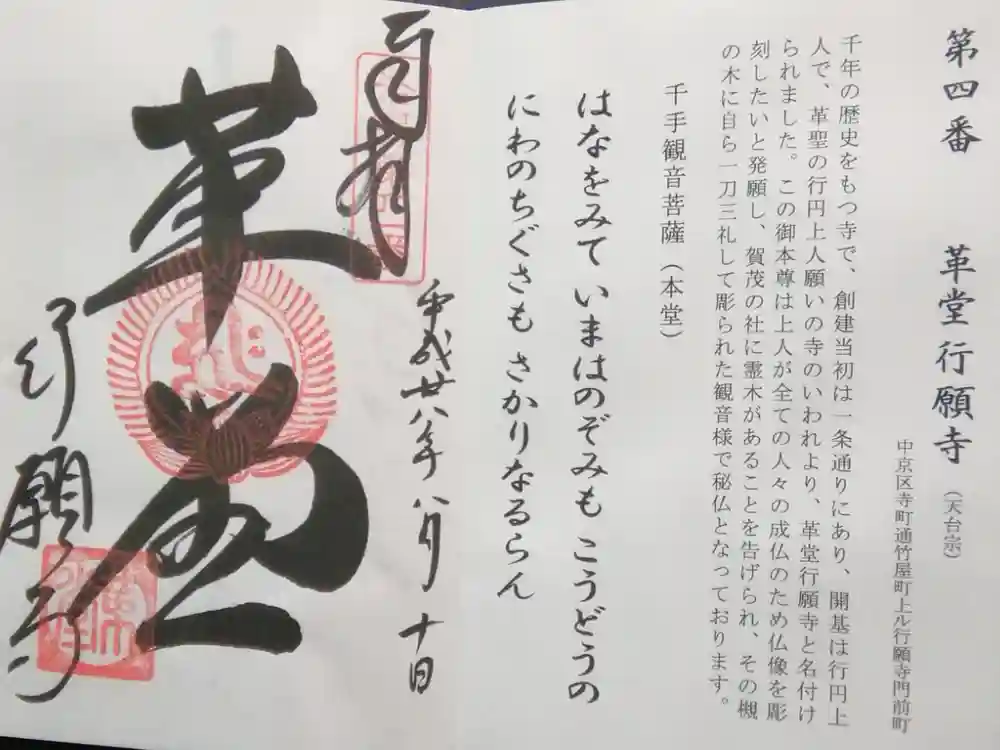 第四番 革堂行願寺（天台宗）
中京区寺町通竹屋町上ル行願寺門前町
千年の歴史をもつ寺で、創建当初は一条通りにあり、開基は行円上
人で、革聖の行円上人願いの寺のいわれより、革堂行願寺と名付け
られました。この御本尊は上人が全ての人々の成仏のため仏像を彫
刻したいと発願し、賀茂の社に霊木があることを告げられ、その槻
の木に自ら一刀三礼して彫られた観音様で秘仏となっております。
千手観音菩薩（本堂）
はなをみて いまはのぞみも こうどうの
にわのちぐさも さかりなるらん
奉拝
平成廿八年 八月 十日
革堂
行願寺